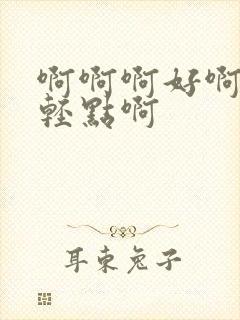 啊啊啊好啊
輕點啊
耳東兔子